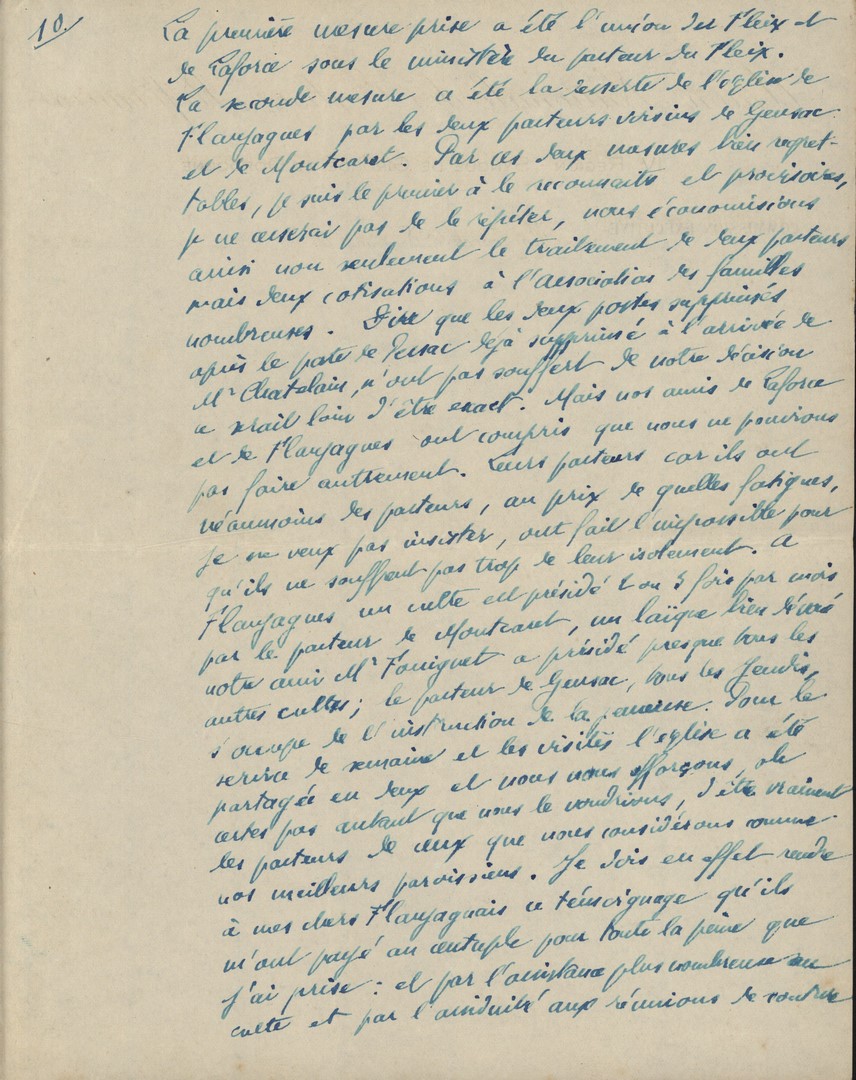 10.
La première mesure prise a été l'union du Fleix et
de Laforce sous le ministère du pasteur du Fleix.
La seconde mesure a été la desserte de l'église de
Flaujagues par les deux pasteurs voisins de Gensac
et de Montcaret. Par ces deux mesures bien regret-
tables, je suis le premier à le reconnaitre et provisoires,
je ne cesserai pas de le répéter, nous économisions
ainsi non seulement le traitement de deux pasteurs
mais deux cotisations à l'Association des familles
nombreuses. Dire que les deux postes supprimés
après le poste de Pessac déjà supprimé à l'arrivée de
Mr Chatelain, n'ont pas souffert de notre décision
ce serait loin d'être exact. Mais nos amis de Laforce
et de Flaujagues ont compris que nous ne pouvions
pas faire autrement. Leurs pasteurs car ils ont
néanmoins des pasteurs, au prix de quelles fatigues,
je ne veux pas insister, ont fait l'impossible pour
qu'ils ne souffrent pas trop de leur isolement. A
Flaujagues un culte est présidé 2 ou 3 fois par mois
par le pasteur de Montcaret, un laïque bien dévoué
notre ami Mr Fouignet a présidé presque tous les
autres cultes; le pasteur de Gensac, tous les Jeudis,
s'occupe de l'instruction de la jeunesse. Pour le
service de semaine et les visites l'église a été
partagée en deux et nous nous efforçons, oh
certes pas autant que nous le voudrions, d'être vraiment
les pasteurs de ceux que nous considérons comme
nos meilleurs paroissiens. Je dois en effet rendre
à mes chers Flaujaguais ce témoignage qu'ils
m'ont payé au centuple pour toute la peine que
j'ai prise: et par l'assistance plus nombreuse au
culte et par l'assiduité aux réunions de couture